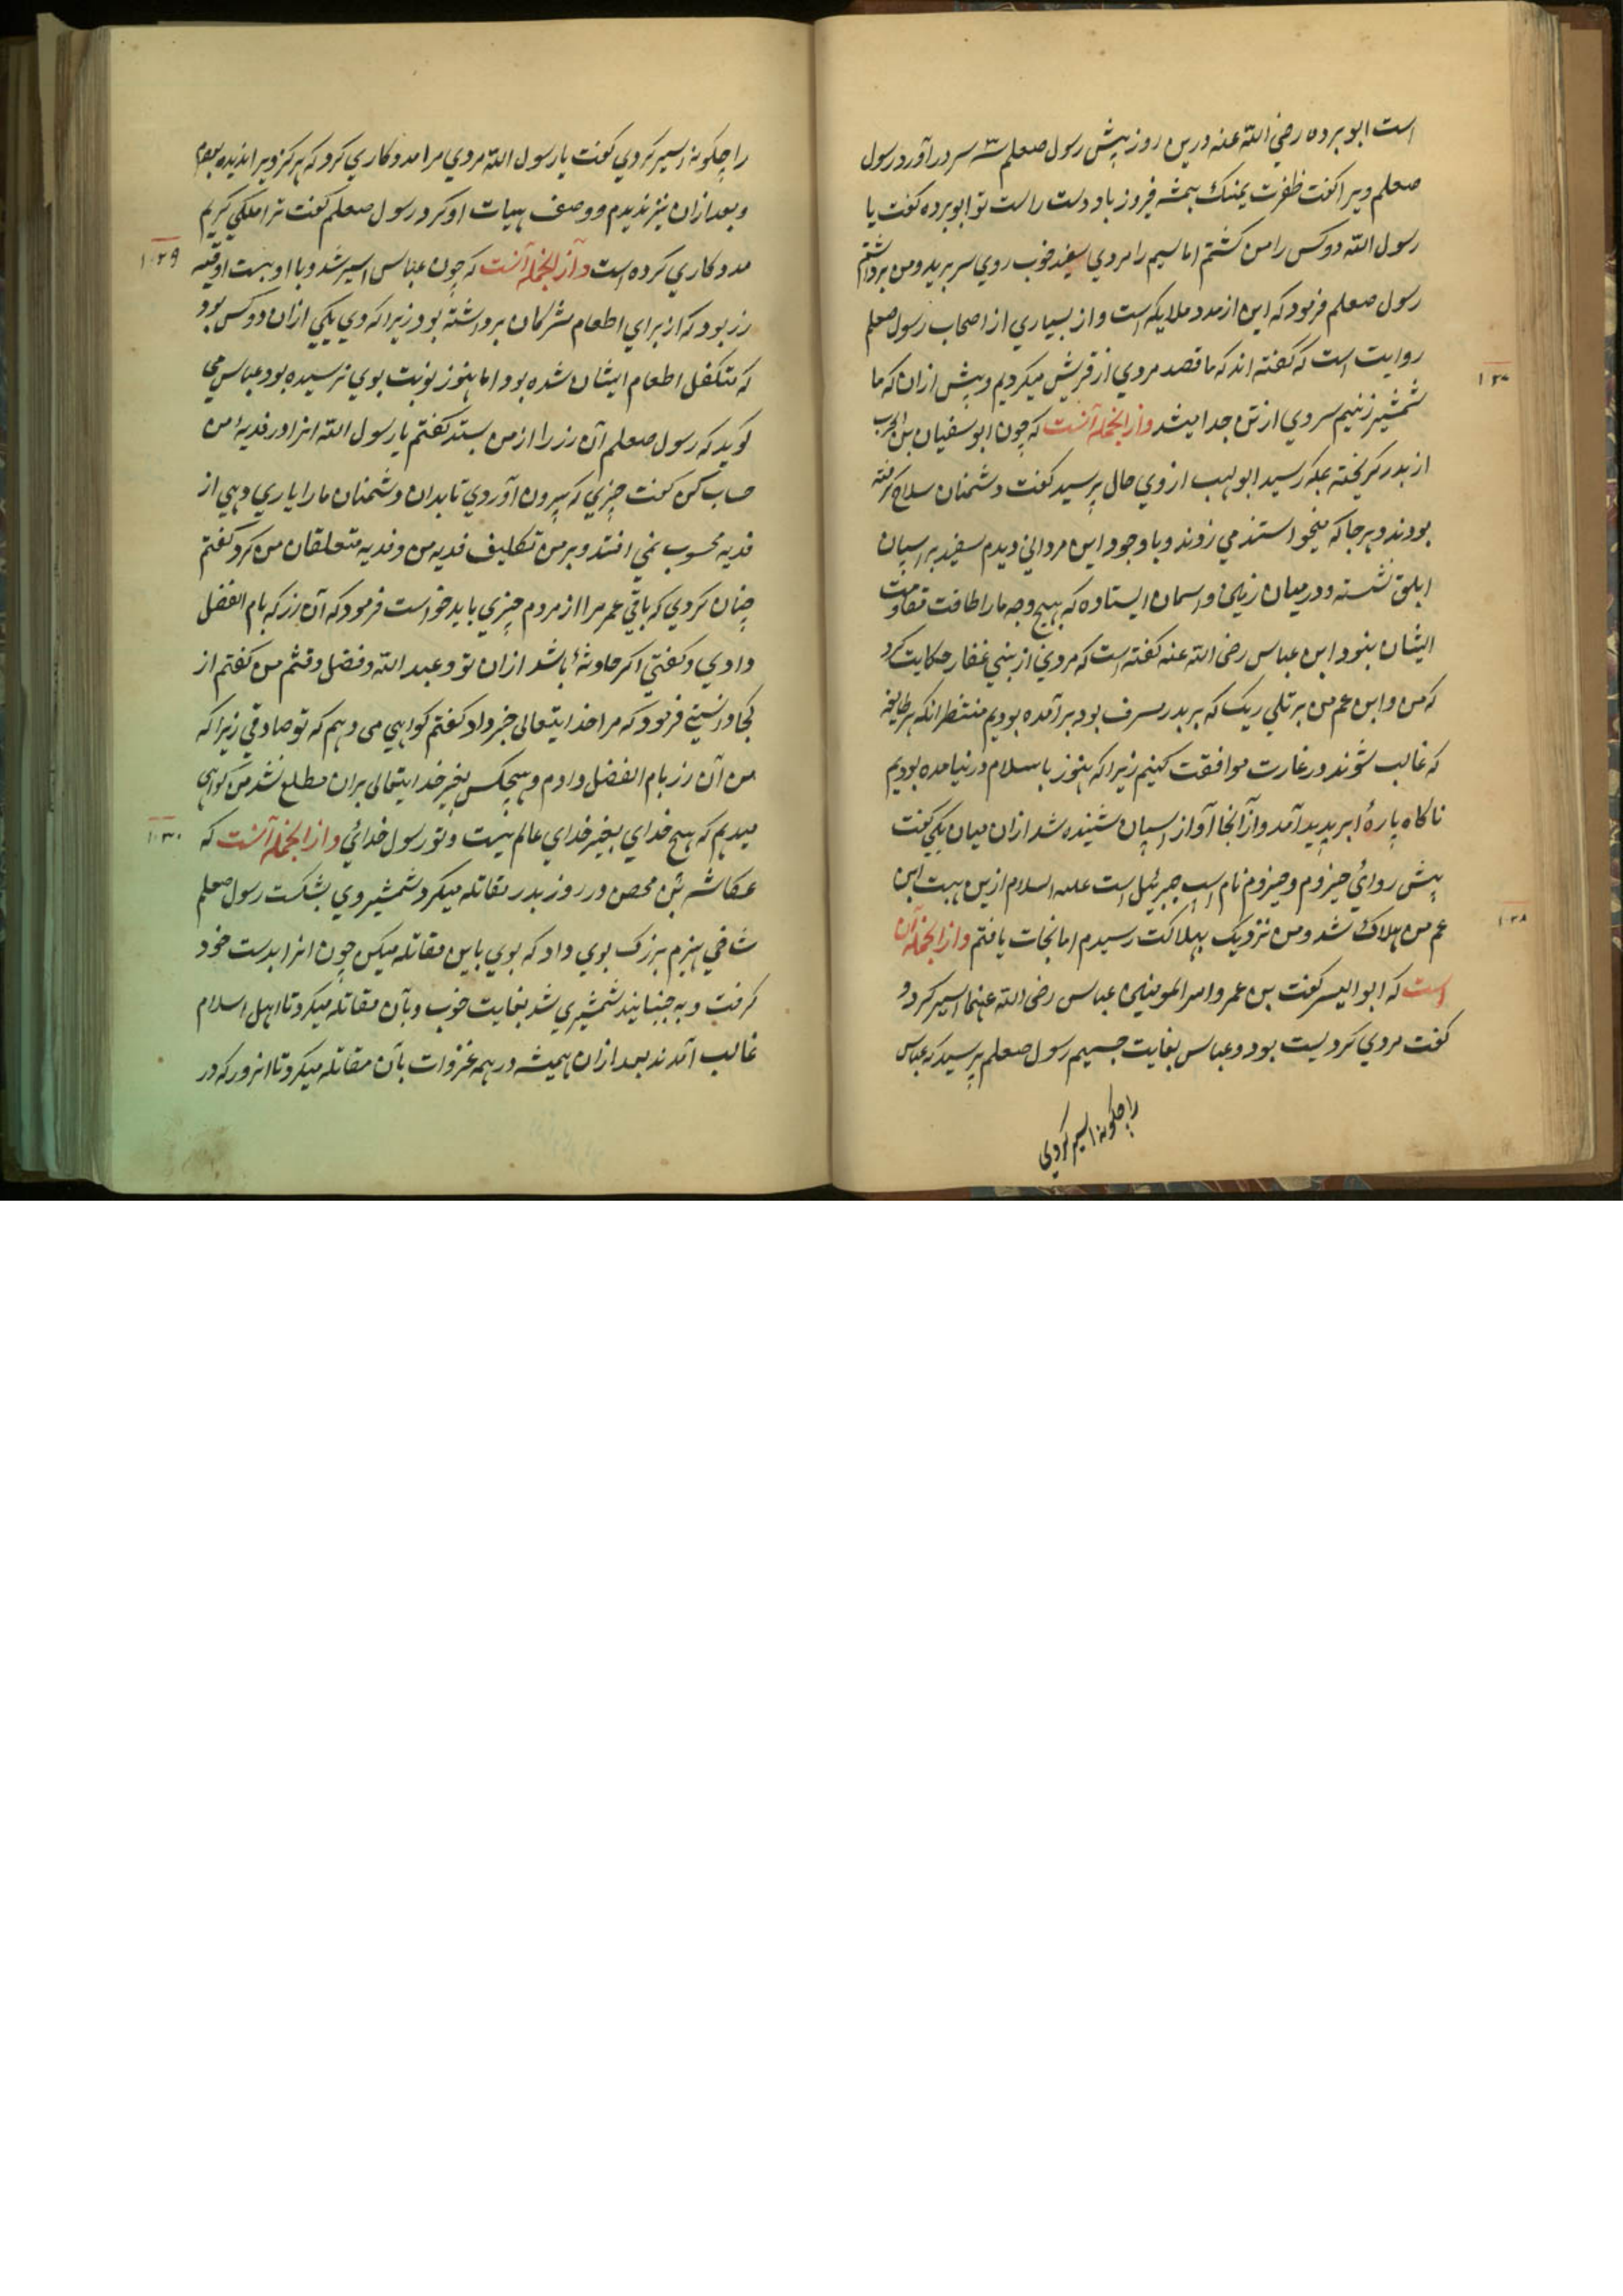 است ابو برده رضي الله عنه درين روز پيش رسول صعلم سه سر در آورد رسول
صعلم ويرا كفت ظفرت يمينك هميشه فيروز باد دست راست تو ابو برده كفت يا
رسول الله دو كس را من كشتم اما سيم را مردي سفيد خوب روي سر بريد و من برداشتم
رسول صعلم فرمود كه اين از مدد ملايكه است و از بسياري از اصحاب رسول صعلم
روايت است كه كفته اند كه ما قصد مردي از قريش ميكرديم و پيش از ان كه ما
۱۰۲۷
شمشير زنيم سر وي از تن جدا ميشد و از انجمله آنست كه چون ابو سفيان بن الحرب
از بدر كريخته بمكه رسيد ابو لهب از وي حال پرسيد كفت دشمنان سلاح كرفته
بودند و هر جا كه ميخواستند مي زدند و با وجود اين مرداني ديدم سفيد بر اسپان
ابلق نشسته و در ميان زمين و اسمان ايستاده كه بهيچ وجه ما را طاقت مقاومت
ايشان نبود ابن عباس رضى الله عنه كفته است كه مردي از بني غفار حكايت كرد
كه من و ابن عم من بر تلي ريك كه بر بدر مشرف بود بر آمده بوديم منتظر انكه هر طايفه
كه غالب شوند در غارت موافقت كنيم زيرا كه هنوز باسلام در نيامده بوديم
ناكاه پارهٔ ابر پديد آمد و از آنجا آواز اسپان شنيده شد از ان ميان يكي كفت
پيش رو اي حيزوم و حيزوم نام اسپ جبرئيل است عليه السلام ازين هيبت ابن
عم من هلاك شد و من نزديك بهلاكت رسيدم اما نجات يافتم و از انجمله آن
۱۰۲۸
است كه ابو اليسر كفت بن عمرو امير المومنين عباس رضى الله عنهما اسير كرد و
كفت مردي كرد پست بود و عباس بغايت جسيم رسول صعلم پرسيد كه عباس
را چكونه اسير كردي
را چكونه اسير كردي كفت يا رسول الله مردي مرا مددكاري كرد كه هركز ويرا نديده بودم
و بعد از ان نيز نديدم و وصف هيات او كرد رسول صعلم كفت ترا ملكي كريم
مددكاري كرده است و از انجمله آنست كه چون عباس اسير شد و با او بيست اوقيه
۱۰۲۹
زر بود كه از براي اطعام مشركان برداشته بود زيرا كه وي يكي از ان دو كس بود
كه متكفل اطعام ايشان شده بود اما هنوز نوبت بوي نرسيده بود عباس مي
كويد كه رسول صعلم آن زر را از من بستد كفتم يا رسول الله انرا در فديهٔ من
حساب كن كفت چيزي كه بيرون آوردي تا بدان دشمنان ما را ياري دهي از
فديه محسوب نمي افتد و بر من تكليف فديه من و فديه متعلقان من كرد كفتم
چنان كردي كه باقي عمر مرا از مردم چيزي بايد خواست فرمود كه آن زر كه بام الفضل
دادي و كفتي اكر حادثهٔ باشد از ان تو و عبد الله و فضل و قثم من كفتم از
كجا دانستي فرمود كه مرا خدايتعالى خبر داد كفتم كواهي مي دهم كه تو صادقي زيرا كه
من آن زر بام الفضل دادم و هيچكس بغير خدايتعالى بران مطلع نشد من كواهي
ميدهم كه هيچ خداي بغير خداي عالم نيست و تو رسول خدائي و از انجمله آنست كه
۱۰۳۰
عكاشه بن محصن در روز بدر مقاتله ميكرد شمشير وي بشكست رسول صعلم
شاخي هيزم بزرك بوي داد كه بوي باين مقاتله ميكن چون انرا بدست خود
كرفت و به جنبانيد شمشيري شد بغايت خوب و بآن مقاتله ميكرد تا اهل اسلام
غالب آمدند بعد از ان هميشه در همه غزوات بآن مقاتله ميكرد تا انروز كه در